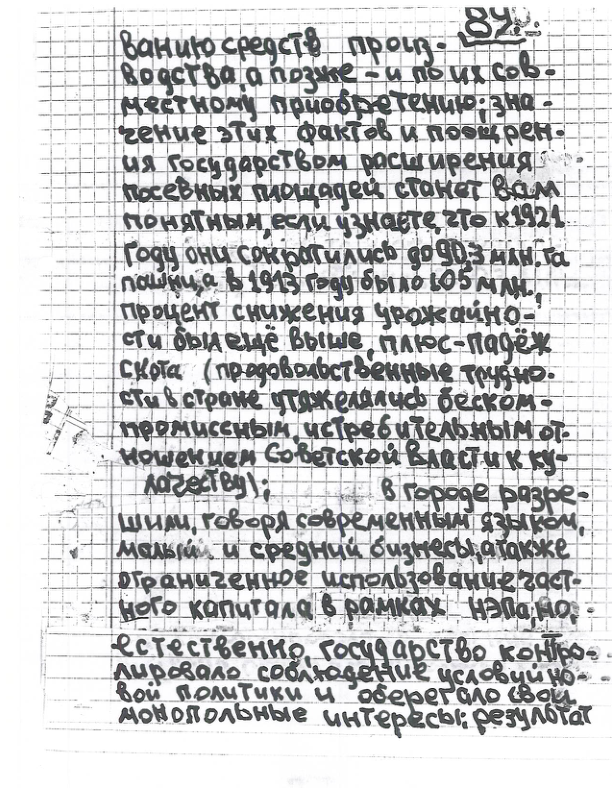 89.
ванию средств произ-
водства, а позже – и по их сов-
местному приобретению; зна-
чение этих фактов и поощрен-
ия государством расширения
посевных площадей станет вам
понятным, если узнаете, что к 1921
году они сократились до 90,3 млн. га
пашни, а в 1913 году было 105 млн.,
процент снижения урожайно-
сти был ещё выше, плюс – падёж
скота (продовольственные трудно-
сти в стране утяжелялись беском-
промиссным, истребительным от-
ношением Советской Власти к ку-
лачеству); в городе разре-
шили, говоря современным языком,
малый и средний бизнесы, а также
ограниченное использование част-
ного капитала в рамках НЭПа, но,
естественно, государство контро-
лировало соблюдение условий но-
вой политики и оберегало свои
монопольные интересы; результат